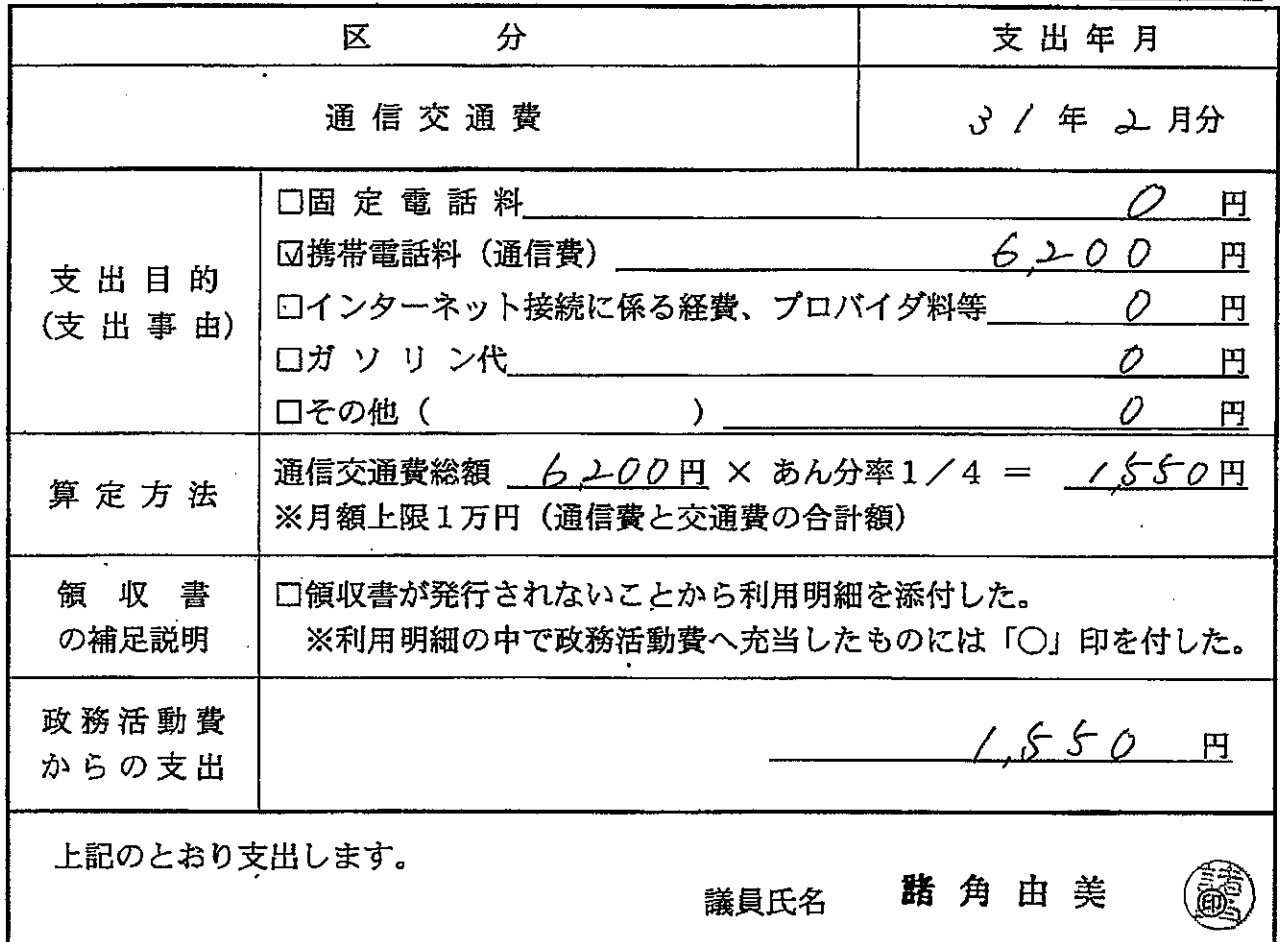 区 分 支出年月
通信交通費 31年2月分
支出目的
(支出事由)
□固定電話料 0 円
☑携帯電話料（通信費） 6,200 円
□インターネット接続に係る経費、プロバイダ料等 0 円
□ガソリン代 0 円
□その他（ ） 0 円
算定方法
通信交通費総額 6,200円 × あん分率1／4 ＝ 1,550円
※月額上限1万円（通信費と交通費の合計額）
領収書
の補足説明
□領収書が発行されないことから利用明細を添付した。
※利用明細の中で政務活動費へ充当したものには「○」印を付した。
政務活動費
からの支出
1,550 円
上記のとおり支出します。
議員氏名 諸角由美 印